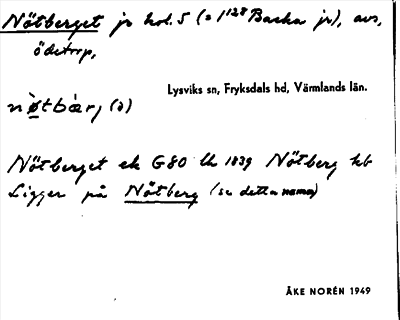 Nötberget jr hol. 5 (= 1/128 Backa jr), avs,
ödetorp,
Lysviks sn, Fryksdals hd, Värmlands län.
nø̀tbàrj (ə)
Nötberget ek G80 Uk 1839 Nötberg kb
Ligger på Nötberg (se detta namn)
ÅKE NORÉN 1949